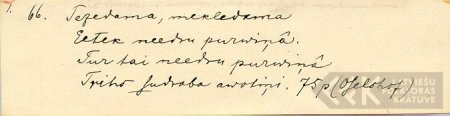 1. 66. Tezedama, mekledama
Eetek needru purwiņâ.
Tur tai needru purwiņâ
Trihs sudraba awotiņi. 75 p (Oselshof)
LATVIEŠU
FOLKLORAS
KRĀTUVE